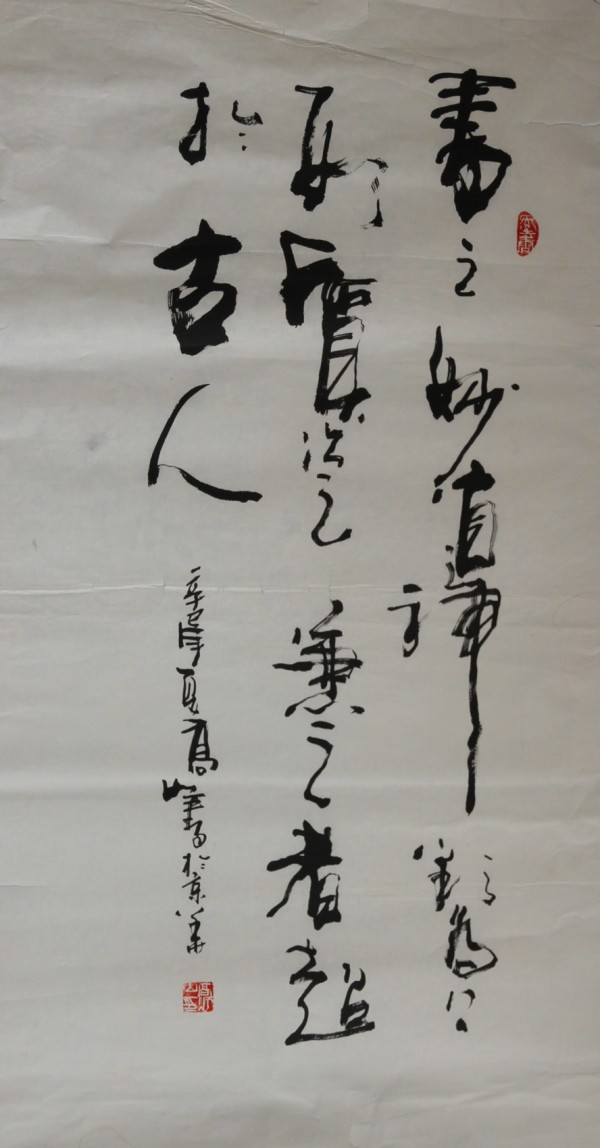 書之妙道神彩為上
形質次之兼之者超
於古人
辛年夏高山書於京華